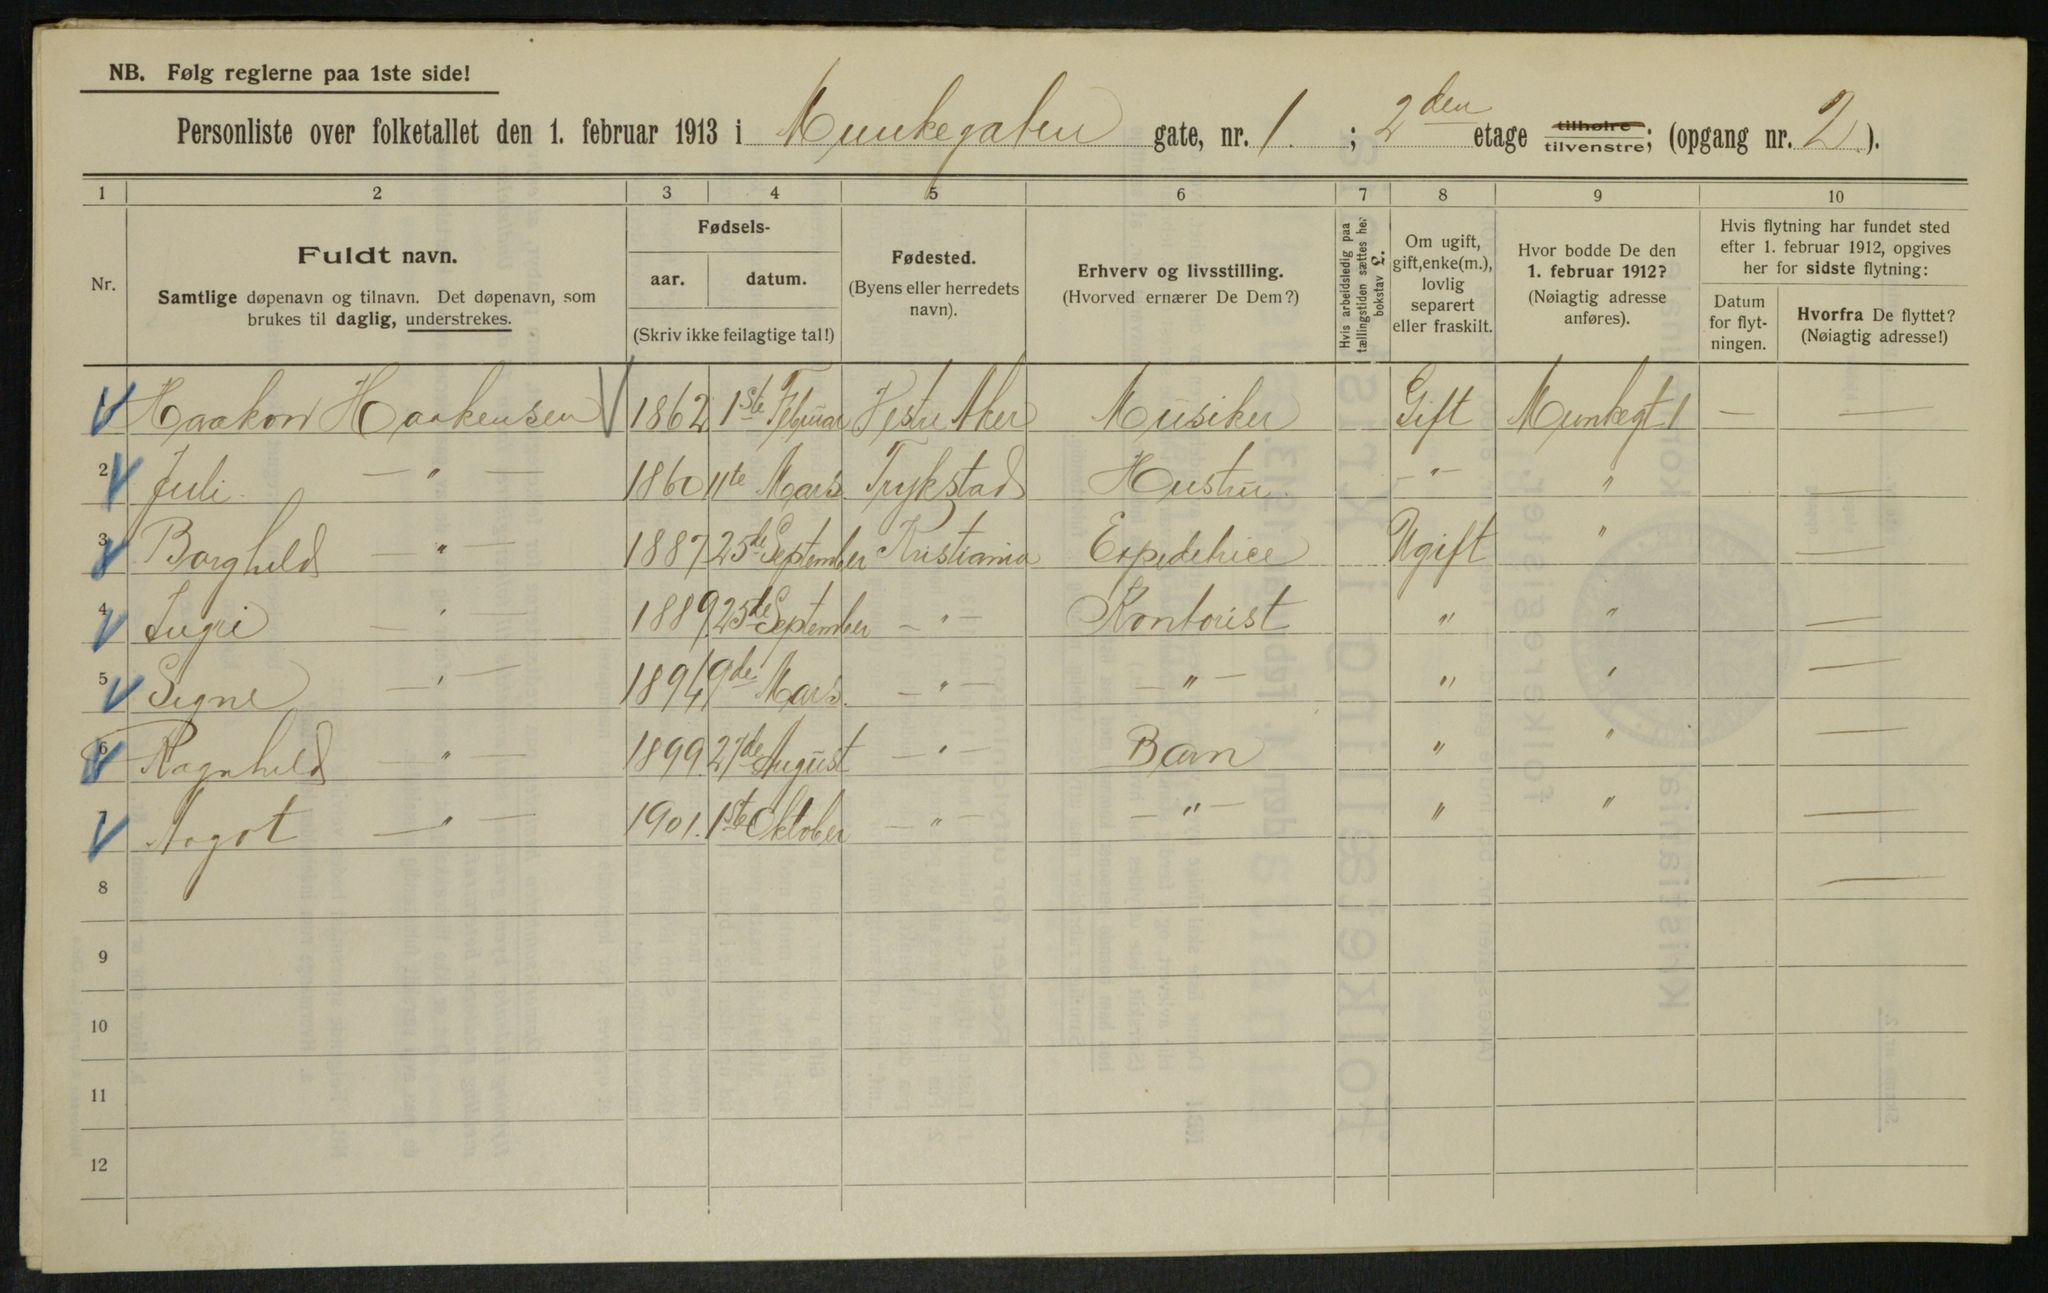 NB. Følg reglerne paa 1ste side!
Personliste over folketallet den 1. februar 1913 i Munkegaten gate, nr. 1. ; 2den etage tilhøire tilvenstre; (opgang nr. 2.).
1 2 3 4 5 6 7 8 9 10
Nr.
Fuldt navn.
Samtlige døpenavn og tilnavn. Det døpenavn, som
brukes til daglig, understrekes.
Fødsels-
aar. datum.
(Skriv ikke feilagtige tal!)
Fødested.
(Byens eller herredets
navn).
Erhverv og livsstilling.
(Hvorved ernærer De Dem?)
Hvis arbeidsledig paa
tællingstiden sættes her
bokstav L.
Om ugift,
gift, enke(m.),
lovlig
separert
eller fraskilt.
Hvor bodde De den
1. februar 1912?
(Nøiagtig adresse
anføres).
Hvis flytning har fundet sted
efter 1. februar 1912, opgives
her for sidste flytning:
Datum
for flyt-
ningen.
Hvorfra De flyttet?
(Nøiagtig adresse!)
1 Haakon Haakensen 1862 1ste Februar Vestre Aker Musiker Gift Munkegt 1 — —
2 Juli — " — 1860 11te Mars Trykstad Hustru — " — " —
3 Borghild — " — 1887 25de September Kristiania Expeditrice Ugift " —
4 Ingri — " — 1889 25de September — " — Kontorist " " —
5 Signe — " — 1894 9de Mars — " — — " — " " —
6 Ragnhild — " — 1899 27de August — " — Barn " " —
7 Aagot — " — 1901. 1ste Oktober — " — — " — " " —
8 —
9
10
11
12